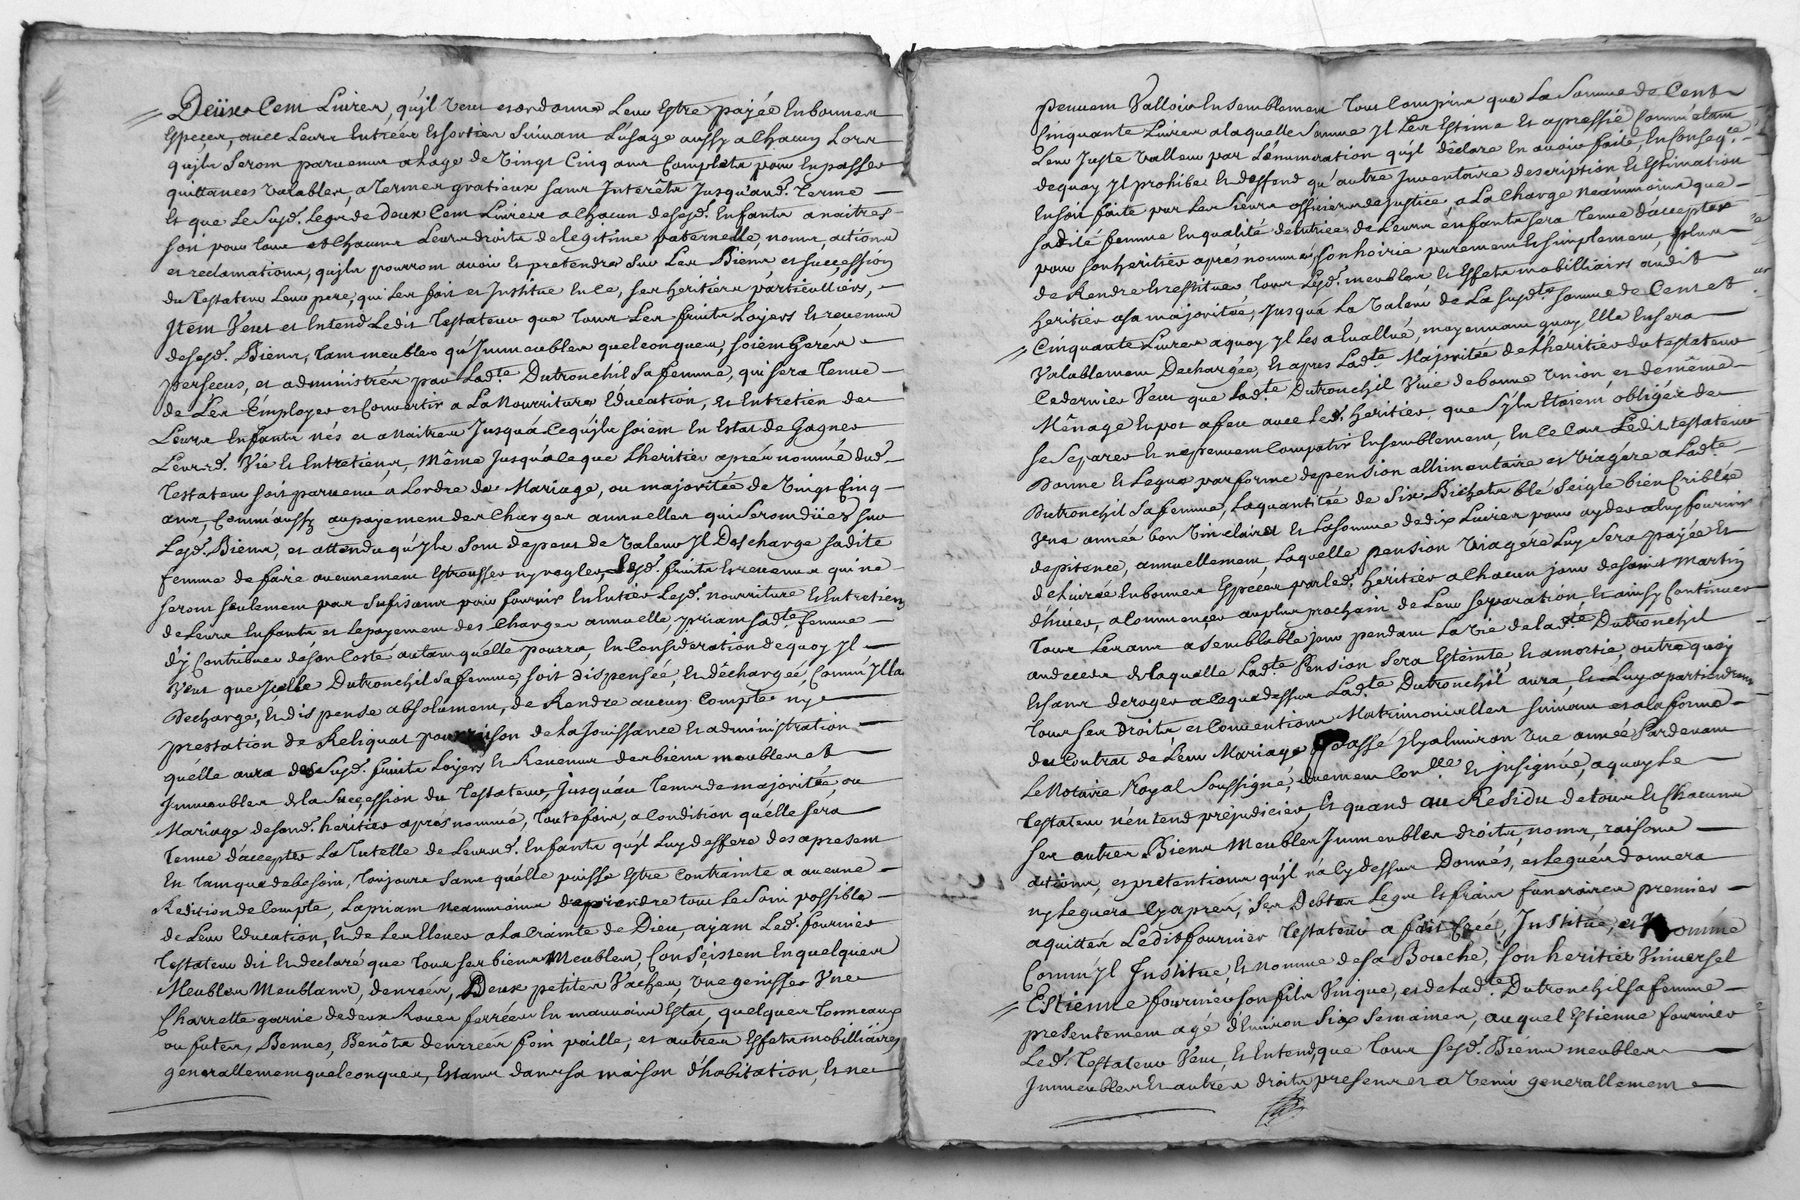 Deüx Cent Livres, qu'il veut et ordonne Leur Estre payée En bonnes
Especes, avec Leurs Entrées Et Sorties Suivant L'usage aussy a Chacun Lors
qu'ils Seront parvenus a L'age de Vingt Cinq ans Complets pour En passer
quittances valables, a termes gratieux sans Interêts Jusqu'aud. terme
Et que Le Susd. Legs de deux Cent Livres a Chacun desesd. Enfants a naitres
soit pour tous et Chacuns Leurs droits de legitime paternelle, noms, actions
et reclamations, qu'ils pourront avoir Et pretendre sur Les Biens et succession
du Testateur Leur pere, qui Les fait et Institue En Ce, ses heritiers particulliers,
Item Veut et Entend Ledit Testateur que tous Les fruits Loyers Et revenus
desesd. Biens, tant meubles qu'Immeubles quelconques, soient Gerés
persecus, et administrés par Lad.te Dutronchil sa femme, qui sera tenue
de Les Employer et Convertir a La Nourriture Education, et Entretien de
Leurs Enfants nés et a naitre Jusqu'a Ce qu'ils soient En Estat de Gagner
Leursd. Vie Et Entretiens, Même Jusqu'a Ce que L'heritier aprés nommé dud.
Testateur soit parvenu a Lordre de Mariage, ou majoritée de Vingt Cinq
ans, Comm'aussy au payement des Charges annuelles qui seront düës sur
Lesd. Biens, et attendu qu'ils sont de peu de Valeur Il Descharge sadite
femme de faire aucunement Estrousser ny regler Lesd. fruits Et revenus qui ne
seront seulement pas sufisants pour fournir En Entier Lesd. nourriture Et Entretien
de Leurs Enfants et Le payement des Charges annuelle, priant sad.te femme
d'y Contribuer de son Costé autant qu'elle pourra, En Consideration de quoy Il
Veut que Jcelle Dutronchil sa femme, soit dispensée, Et déchargée, Comm'Il la
Decharge, Et dispense absolument, de Rendre aucun Compte ny
prestation de Reliquat pour raison de la Jouissance Et administration
qu'elle aura desSusd. fruits Loyers Et Revenus des biens meubles et
Immeubles de la Succession du Testateur, Jusqu'au Tems de majoritée, ou
Mariage desond. heritier aprés nommé, toutefois, a Condition qu'elle sera
tenue d'accepter La Tutelle de Leursd. Enfants qu'il Luy deffere des apresent
En tant que de besoin, toujours sans qu'elle puisse Estre Contrainte a aucune
Redition de Compte, La priant neammoins de prendre tout Le Soin possible
de Leur Education, Et de Les Elever a La Crainte de Dieu, ayant Led. fournier
Testateur dit Et declaré que tous ses biens Meubles, Consistent En quelques
Meubles Meublants, denrées, Deux petites Vaches, Une genisse, Une
Charrette garnie de deux Roues ferrées En mauvais Estat, quelques Tonneaux
ou futes, Bennes, Benôts denrées foin paille, et autres Effets mobilliaires
generallement quelconques, Estants dans sa maison d'habitation, Et ne
peuvent Valloir Ensemblement tous Compris que La Somme de Cent
Cinquante Livres a laquelle somme Il Les Estime Et apressié comm'étant
Leur Juste Valleur par L'enumeration qu'il déclare En avoir faite, En Conseq.ce
de quoy Il prohibe Et deffend qu'autre Inventaire description Et Estimation
En soit faite par Les sieurs officiers de justice, a La Charge neammoins que
sadite femme En qualité de tutrice de Leurs enfants sera tenue d'accepter
pour son heritier aprés nommé, son hoirie purement Et simplement, Et
de Rendre Et restituer tous Lesd. meubles Et Effets mobilliairs audit
heritier a sa majoritée, Jusqu'a La Valeur de La Susd.te somme de Cent Et
Cinquante Livres a quoy Il Les a Evallué, moyennant quoy Elle En sera
Valablement Dechargée, Et apres Lad.te Majoritée de L'heritier du testateur
Ce dernier Veut que Lad.te Dutronchil Vive de bonne Union et de même
Mênage Et pot a feu avec Led. heritier, que S'ils Etoient obligés de
se Separer Et ne peuvent Compatir Ensemblement, En Ce Cas Ledit testateur
Donne Et Legue par forme de pension allimentaire et Viagére a Lad.te
Dutronchil sa femme, La quantitée de Six Bichets blé Seigle bien Criblée
une année bon Vin clairet Et La somme de dix Livres pour ayder a luy fournir
de pitence, annuellement, Laquelle pension Viagére Luy Sera payée Et
delivrée En bonnes Especes par led. heritier a Chacun jour de saint Martin
d'hiver, a Commencer au plus prochain de Leur separation Et ainsy Continuer
tous Les ans a semblable jour pendant La Vie de lad.te Dutronchil
au deced de laquelle Lad.te Pension Sera Esteinte Et amortie, outre quoy
Et sans deroger a Ce que dessus Lad.te Dutronchil aura, Et Luy apartiendront
tous ses Droits et Conventions Matrimonialles suivant et a la forme
du Contrat de Leur Mariage passé Il y a Environ Une année Pardevant
Le Notaire Royal Soussigné, duement Con.llé Et jnsignüe, a quoy Le
Testateur n'entend prejudicier, Et quand au Residu de tous Et Chacuns
ses autres Biens Meubles Immeubles droits, noms, raisons
actions, et pretentions qu'il n'a Cy dessus Donnés, et Legués donnera
ny Leguera Cy aprés, Ses Debtes Legs Et frais funeraires premier
aquittés Ledit fournier Testateur a fait Creé, Institué, et Nommé
Comm'Il Institue, Et nomme de sa Bouche, son heritier Universel
Estienne fournier son fils Unique, et de Lad.te Dutronchil sa femme
presentement agé d'Environ Six Semaines, auquel Estienne fournier
Led. Testateur Veut, Et Entend que tous sesd. Biens meubles
Immeubles Et autres droits presents et a Venir generallement